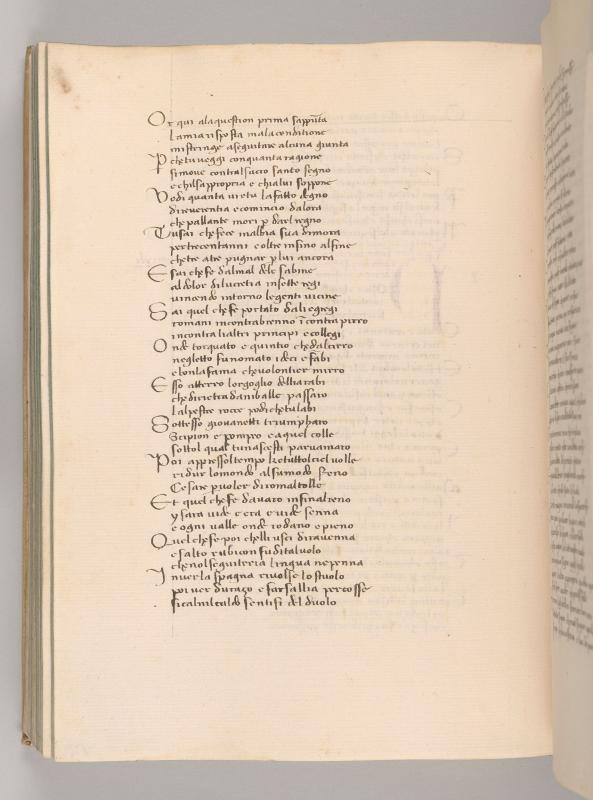 Or qui ala question prima sappūta
la mia risposta ma la conditione
mi stringe a seguitare alcuna giunta
P che tu veggi con quanta ragione
si move contral sacro santo segno
e chil sappropria e chi a lui soppone
Vedi quanta virtu la fatto degno
di reverentia e comincio dalora
che pallante mori p darel regno
Tu sai che fece in albia sua dimora
per trecentanni e oltre infino al fine
che tre a tre pugnar p lui ancora
E sai che fe dal mal dele sabine
al dolor di lucretia in sette regi
vincendo intorno le genti vicine
Sai quel che fe portato dali egregi
romani incontra brenno ī contra pirro
incontra li altri principi e collegi
Onde torquato e quintio che dal cirro
negletto fu nomato i deci e fabi
e bon la fama che volontier mirro
Esso atterro lorgoglio delli arabi
che dirietra daniballe passaro
lalpestre rocce po di che tu labi
Sottesso giovanetti triumpharo
Scipion e pompeo e a quel colle
sottol qual tu nascesti parv amaro
Poi appressol tempo che tuttol ciel volle
ridur lo mondo al su modo sereno
Cesare p voler di roma l tolle
Et quel che fe da varo infin al reno
ysara vide e era e vide senna
e ogni valle onde rodano e pieno
Quel che fe poi chelli usci di ravenna
e salto rubicon fu di tal volo
che nol seguiteria lingua ne penna
Inver la spagna rivolse lo stuolo
poi ver durazo e farsallia percosse
si cal nil caldo senti si del duolo